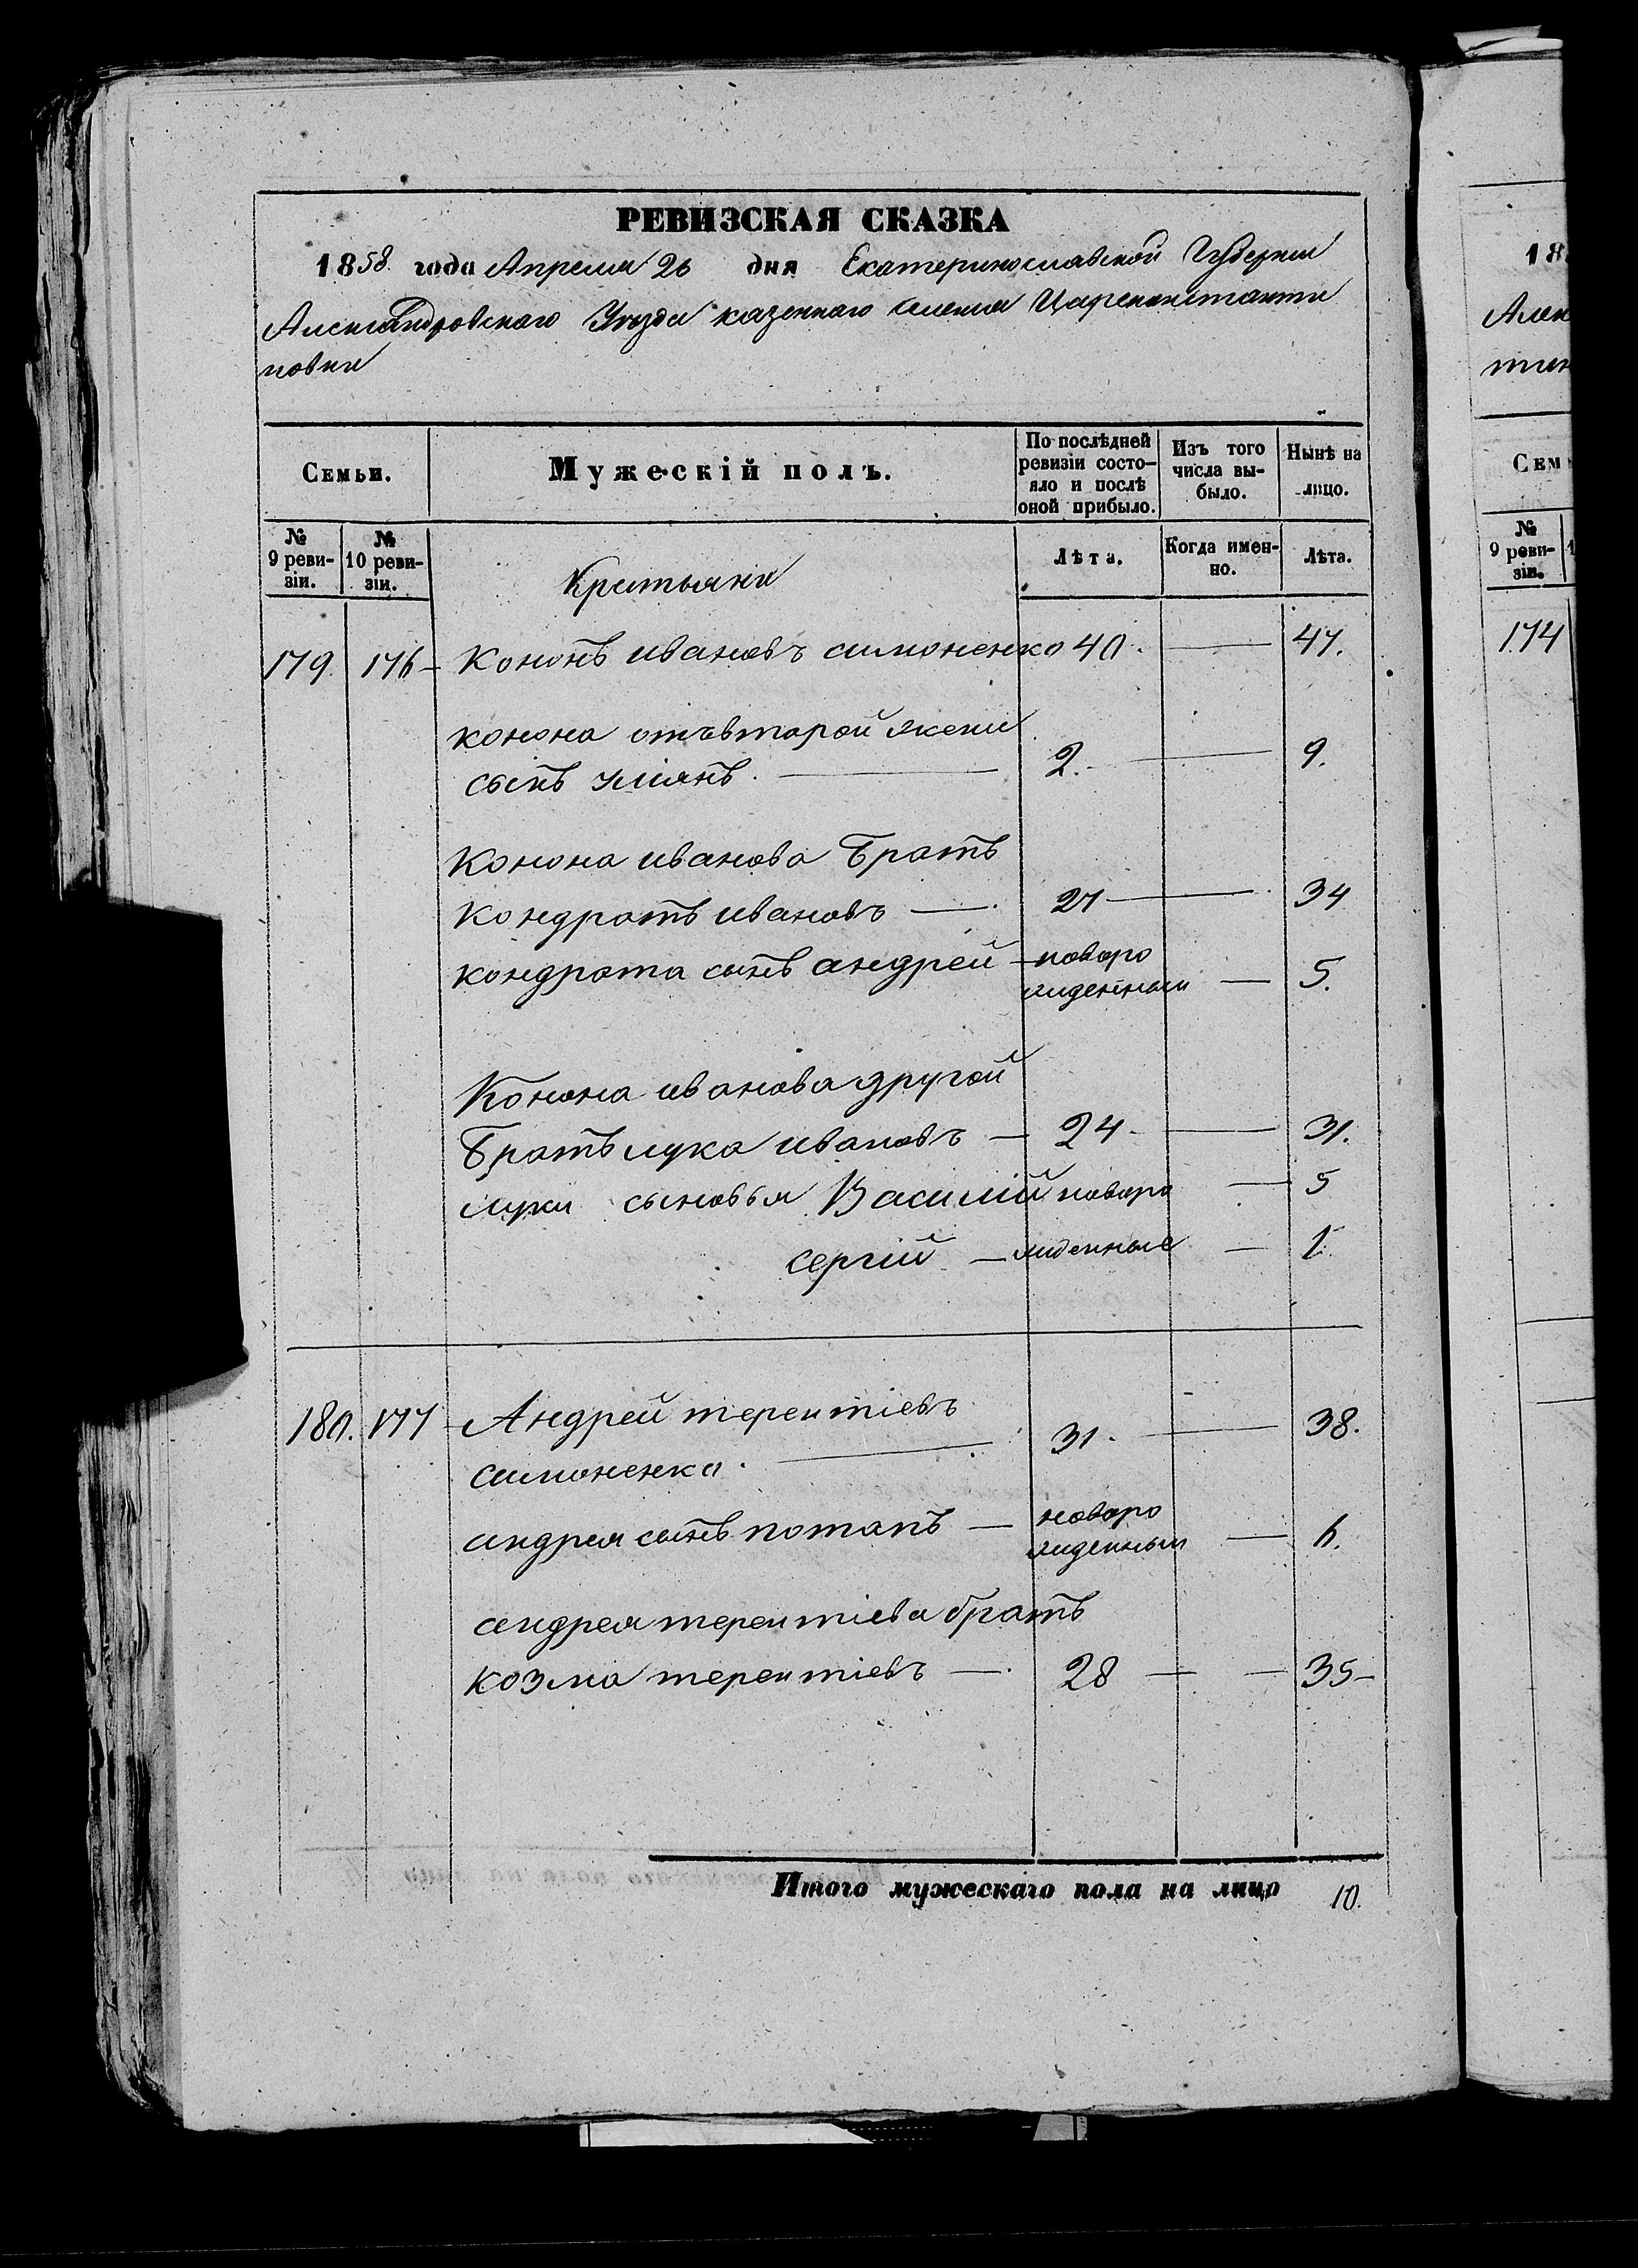 РЕВИЗСКАЯ СКАЗКА
1858 года Апреля 26 дня Екатеринославской Губернии
Александровскаго Уѣзда казеннаго селенія Цареконстанти
новки
Семьи.
Мужескій полъ.
По послѣдней ревизіи состо-
яло и послѣ
оной прибыло.
Изъ того
числа вы-
было.
Нынѣ на
лицо.
№
9 реви-
зіи.
№
10 реви-
зіи.
Лѣта.
Когда имен-
но.
Лѣта.
Крестьяне
179. 176 - Кононъ ивановъ симоненко 40. — 47.
конона отъ второй жени
сынъ уліянъ. — 2. — 9.
Конона иванова Братъ
Кондратъ ивановъ — 27 — 34
кондрата сынъ андрей — новоро
жиденный — 5.
Конона иванова другой
Братъ лука ивановъ — 24 — 31.
луки сыновья Василій новоро — 5
сергій — жиденные — 1.
180. 177 - Андрей терентіевъ
симоненко. — 31. — 38.
андрея сынъ потапъ — новоро
жиденный — 6.
андрея терентіева братъ
козма терентіевъ — 28 — 35 -
Итого мужескаго пола на лицо 10.
18
Алек
тин
Сем
№
9 реви-
зіи.
174